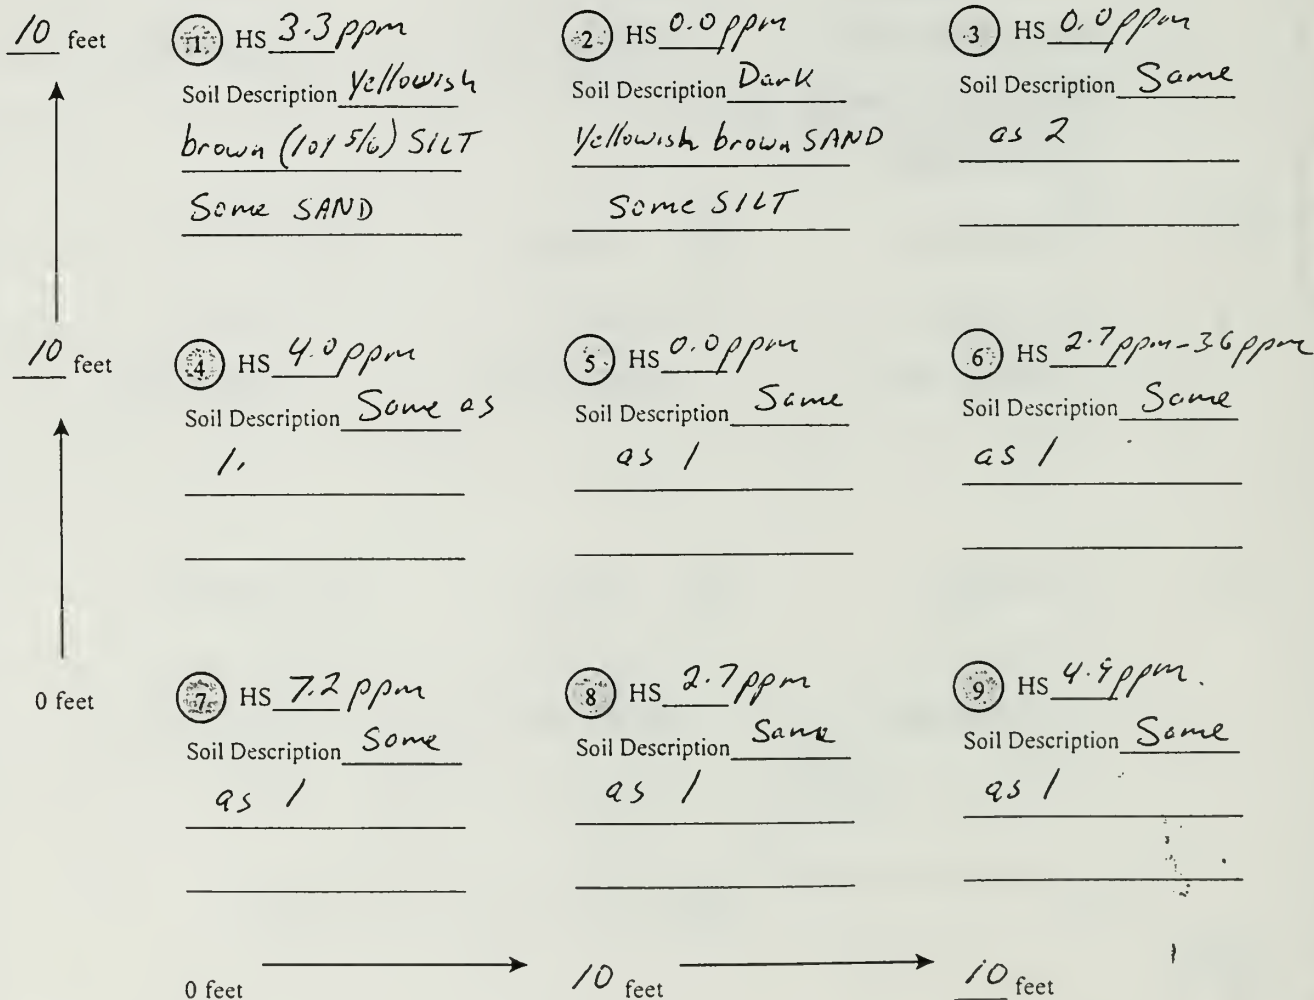 10 feet
1 HS 3.3 ppm
Soil Description Yellowish
brown (10Y 5/6) SILT
Some SAND
2 HS 0.0 ppm
Soil Description Dark
Yellowish brown SAND
Some SILT
3 HS 0.0 ppm
Soil Description Same
as 2
10 feet
4 HS 4.0 ppm
Soil Description Same as
1.
5 HS 0.0 ppm
Soil Description Same
as 1
6 HS 2.7 ppm - 3.6 ppm
Soil Description Same
as 1
0 feet
7 HS 7.2 ppm
Soil Description Same
as 1
8 HS 2.7 ppm
Soil Description Same
as 1
9 HS ppm.
Soil Description Same
as 1
0 feet 10 feet 10 feet